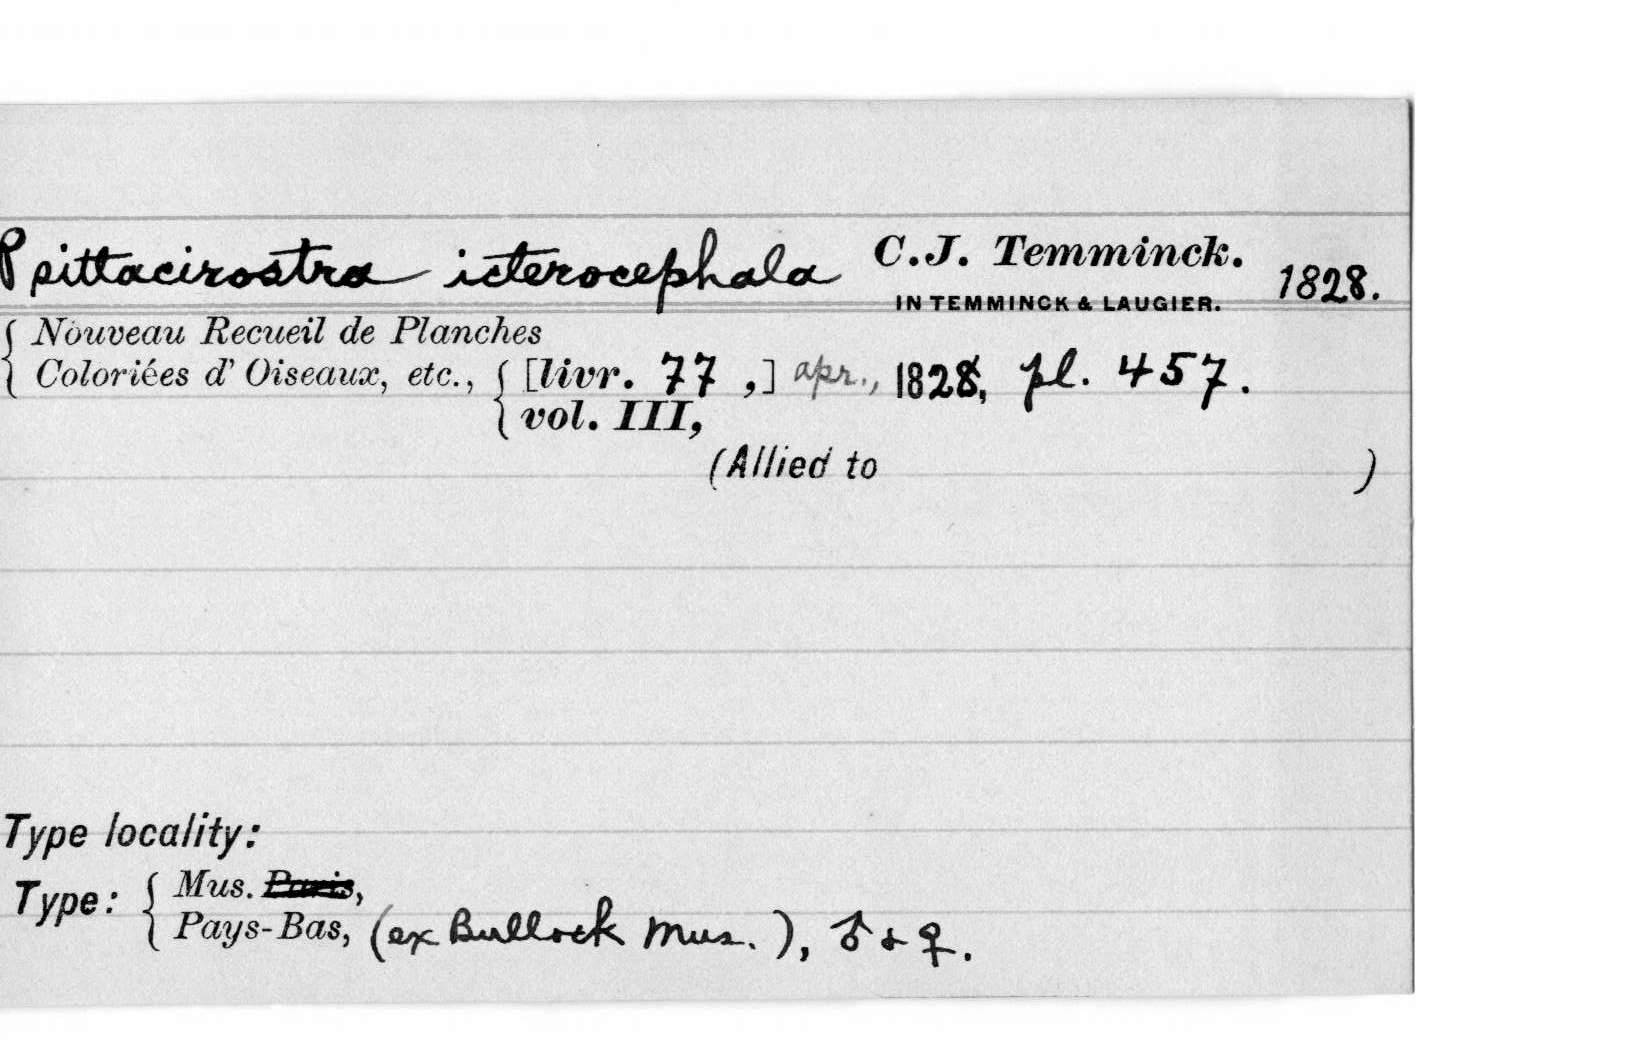 Psittacirostra icterocephala C.J. Temminck. 1828.
IN TEMMINCK & LAUGIER.
Nouveau Recueil de Planches
Coloriées d' Oiseaux, etc., [livr. 77 ,] apr., 1828, pl. 457.
vol. III,
(Allied to )
Type locality:
Type: Mus. Paris,
Pays-Bas, (ex Bullock Mus.), ♂ & ♀.